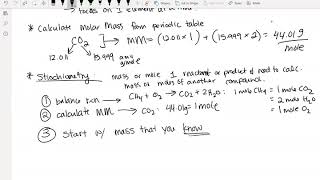 * Calculate Molar Mass from periodic table
CO2 → MM = (12.011 × 1) + (15.999 × 2) = 44.01 g
mole
12.011 15.999
* Stoichiometry mass or mole 1 reactant or product if need to calc.
mass or mass of another compound.
① balance rxn → CH4 + O2 → CO2 + 2H2O : 1 mole CH4 = 1 mole CO2
= 2 mole H2O
② calculate MM → CO2 : 44.01g = 1 mole = 1 mole O2
③ Start w/ mass that you know